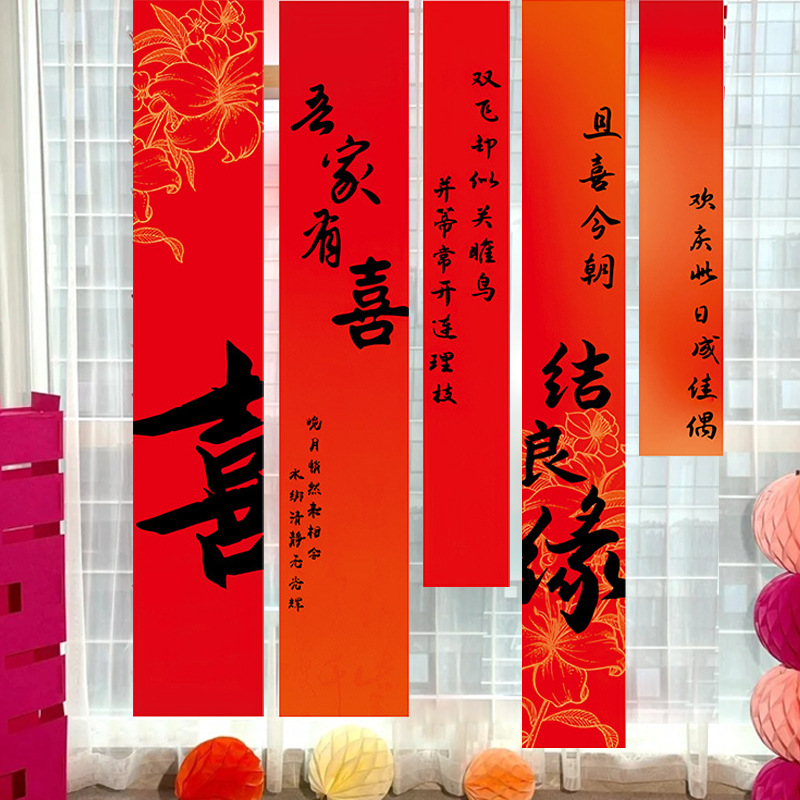 喜
吾家有喜
晚月悄然
清静无光辉
双飞却似关雎鸟
并蒂常开连理枝
且喜今朝
结良缘
欢庆此日成佳偶